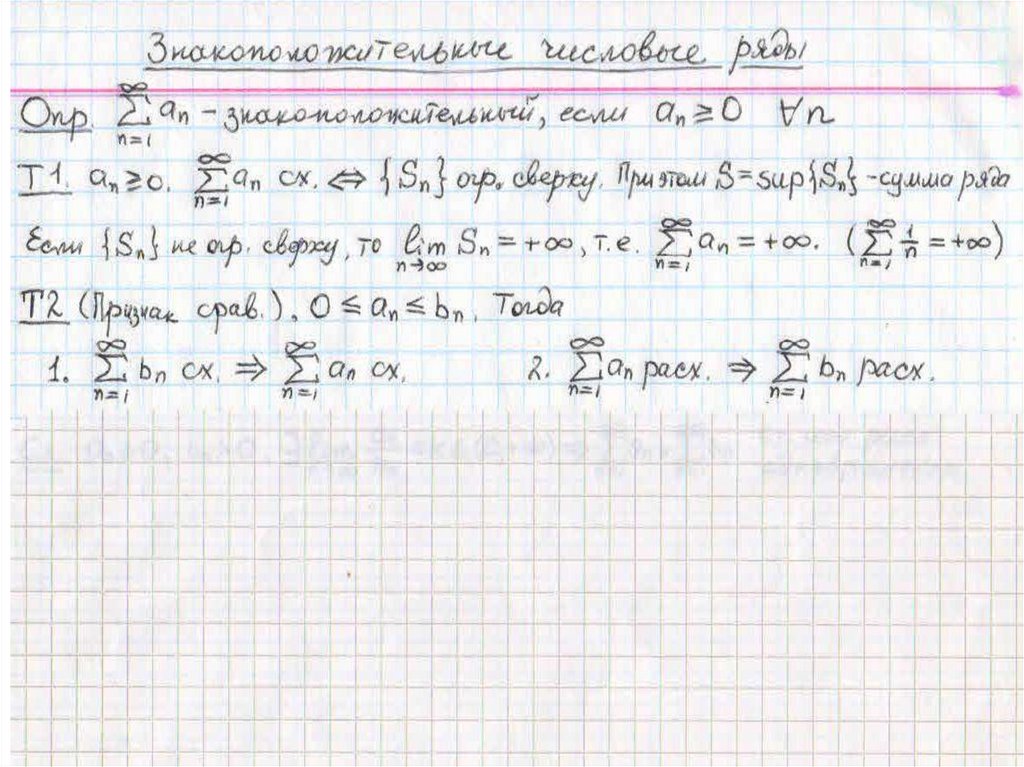 Знакоположительные числовые ряды
Опр. ∑_{n=1}^{∞} aₙ – знакоположительный, если aₙ ≥ 0 ∀n
Т1. aₙ ≥ 0. ∑_{n=1}^{∞} aₙ сх. ⇔ {Sₙ} огр. сверху. При этом S = sup{Sₙ} – сумма ряда
Если {Sₙ} не огр. сверху, то lim_{n→∞} Sₙ = +∞, т.е. ∑_{n=1}^{∞} aₙ = +∞. (∑_{n=1}^{∞} 1/n = +∞)
Т2 (Признак срав.). 0 ≤ aₙ ≤ bₙ. Тогда
1. ∑_{n=1}^{∞} bₙ сх. ⇒ ∑_{n=1}^{∞} aₙ сх. 2. ∑_{n=1}^{∞} aₙ расх. ⇒ ∑_{n=1}^{∞} bₙ расх.